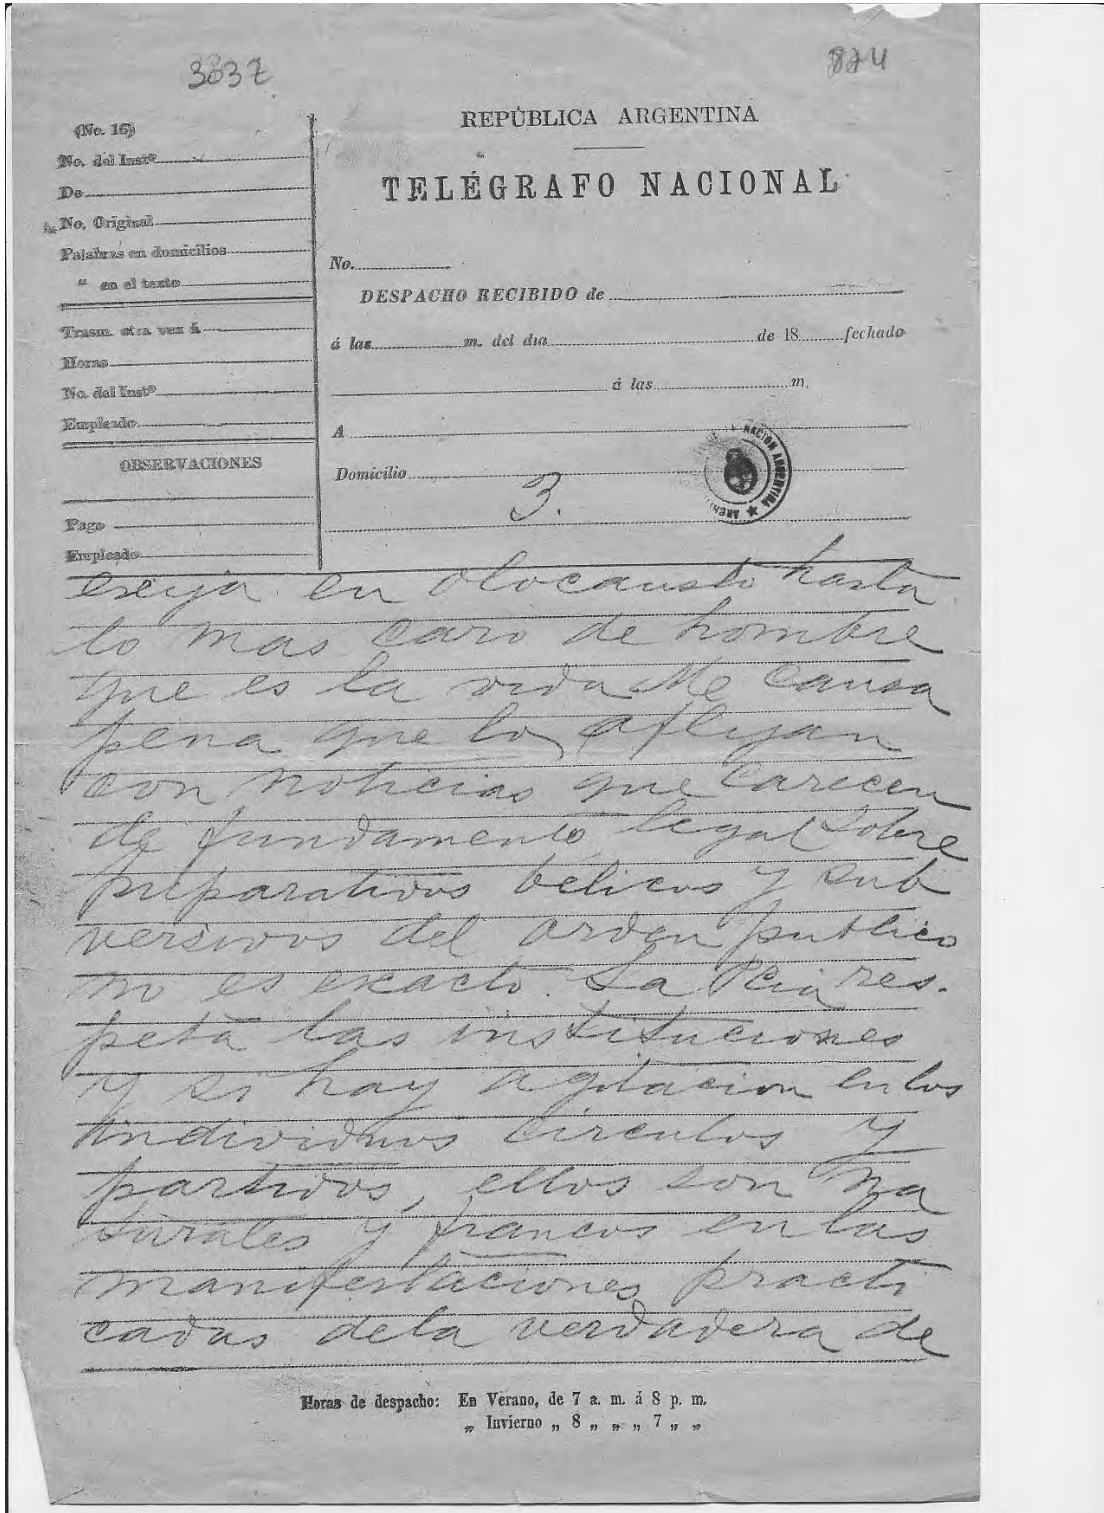 3837
874
(No. 16)
No. del Instº
De
No. Original
Palabras en domicilios
" en el texto
Trasm. otra vez á
Horas
No. del Instº
Empleado
OBSERVACIONES
Pago
Empleado
REPÚBLICA ARGENTINA
TELÉGRAFO NACIONAL
No.
DESPACHO RECIBIDO de
á las m. del dia de 18 fechado
á las m.
A
Domicilio
3.
NACION ARGENTINA ★
exija en olocausto hasta
lo mas caro de hombre
que es la vida Me causa
pena que lo aflijan
con noticias que carecen
de fundamento legal sobre
preparativos belicos y sub
versivos del orden publico
no es exacto. La Pcia res-
peta las instituciones
y si hay agitacion en los
individuos circulos y
partidos, ellos son na
turales y francos en las
manifestaciones practi
cadas dela verdadera de
Horas de despacho: En Verano, de 7 a. m. á 8 p. m.
„ Invierno „ 8 „ „ „ 7 „ „